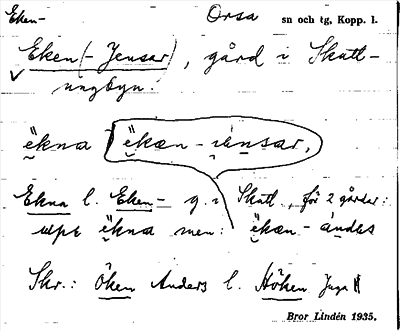 Eken- Orsa sn och tg, Kopp. l.
Eken(-Jensar), gård i Skatt-
ungbyn.
ëkna ëkæn - iænsar,
Ekna l. Eken- g. i Skatt., för 2 gårdar:
uspr ëkna men: ëkæn-ándes
Skr.: Öken Anders l. Höken Juga
Bror Lindén 1935.